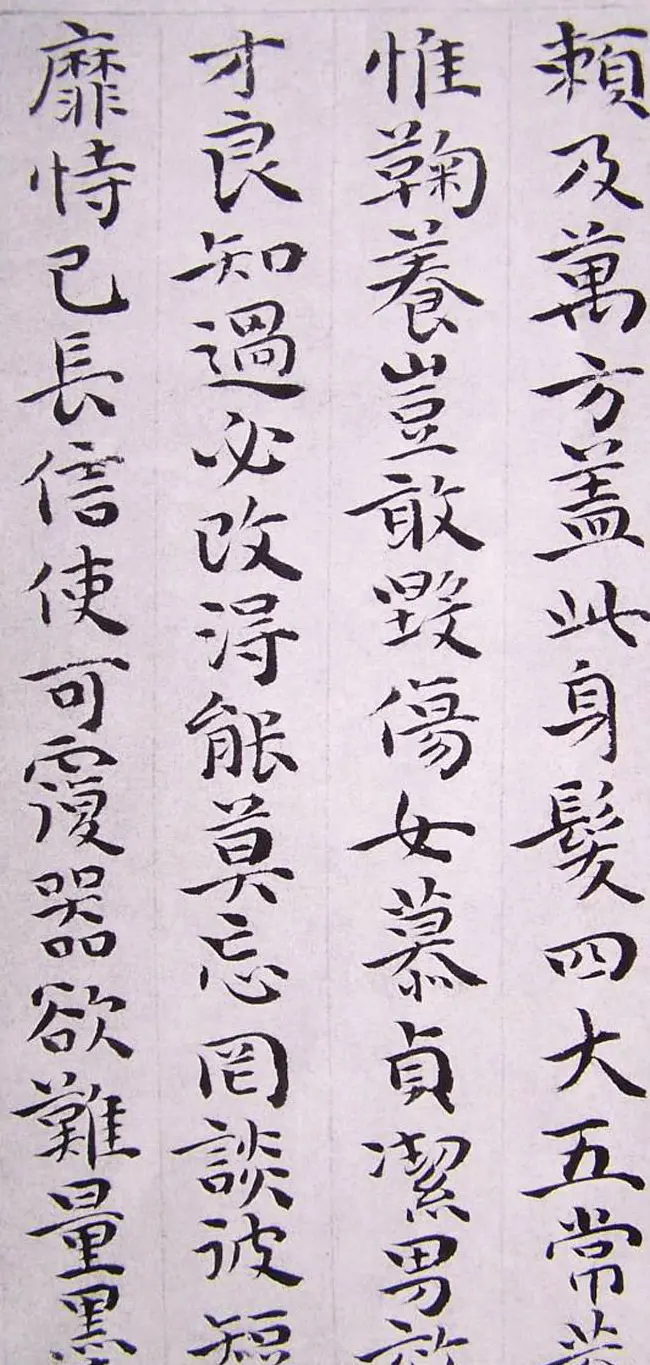 賴及萬方蓋此身髮四大五常
惟鞠養豈敢毀傷女慕貞潔男效
才良知過必改得能莫忘罔談彼短
靡恃己長信使可覆器欲難量墨